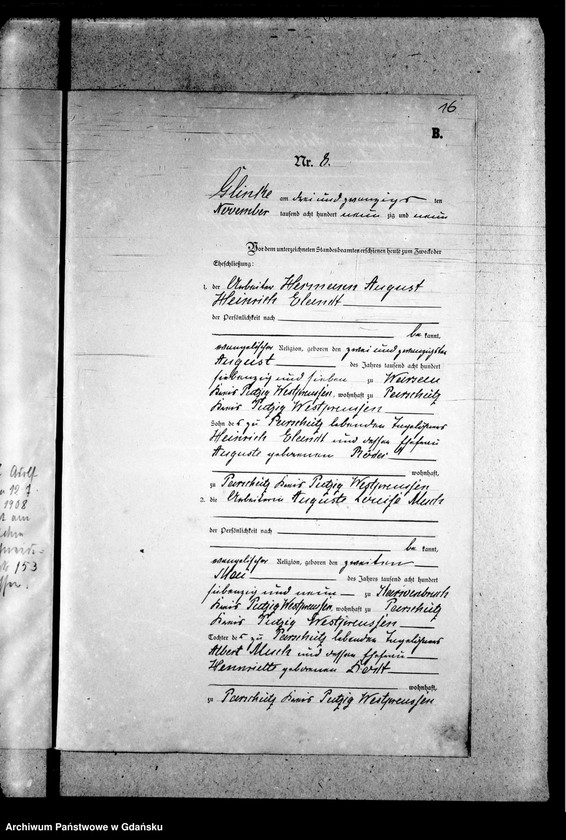 16
B.
Nr. 8.
Glinke am drei und zwanzigs ten
November tausend acht hundert neun zig und neun
Vor dem unterzeichneten Standesbeamten erschienen heute zum Zwecke der
Eheschließung:
1. der Arbeiter Hermann August
Heinrich
der Persönlichkeit nach
be kannt,
evangelischer Religion, geboren den zwei und zwanzigsten
August des Jahres tausend acht hundert
siebenzig und sieben zu
Kreis Putzig Westpreussen, wohnhaft zu Parschütz
Kreis Putzig Westpreussen
Sohn des zu Parschütz lebenden
Heinrich und dessen Ehefrau
Auguste geborenen Röder
wohnhaft,
zu Parschütz Kreis Putzig Westpreussen
2. die Arbeiterin Auguste Louise
der Persönlichkeit nach
be kannt,
evangelischer Religion, geboren den zweiten
Mai des Jahres tausend acht hundert
siebenzig und neun zu Karwenbruch
Kreis Putzig Westpreussen, wohnhaft zu Parschütz
Kreis Putzig Westpreussen
Tochter des zu Parschütz lebenden
Albert und dessen Ehefrau
Henriette geborenen
wohnhaft,
zu Parschütz Kreis Putzig Westpreussen
Adolf
1908
153
Archiwum Państwowe w Gdańsku